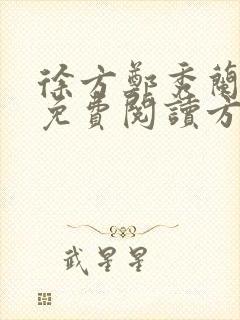 徐方鄭秀蘭
免費閱讀方
武星星